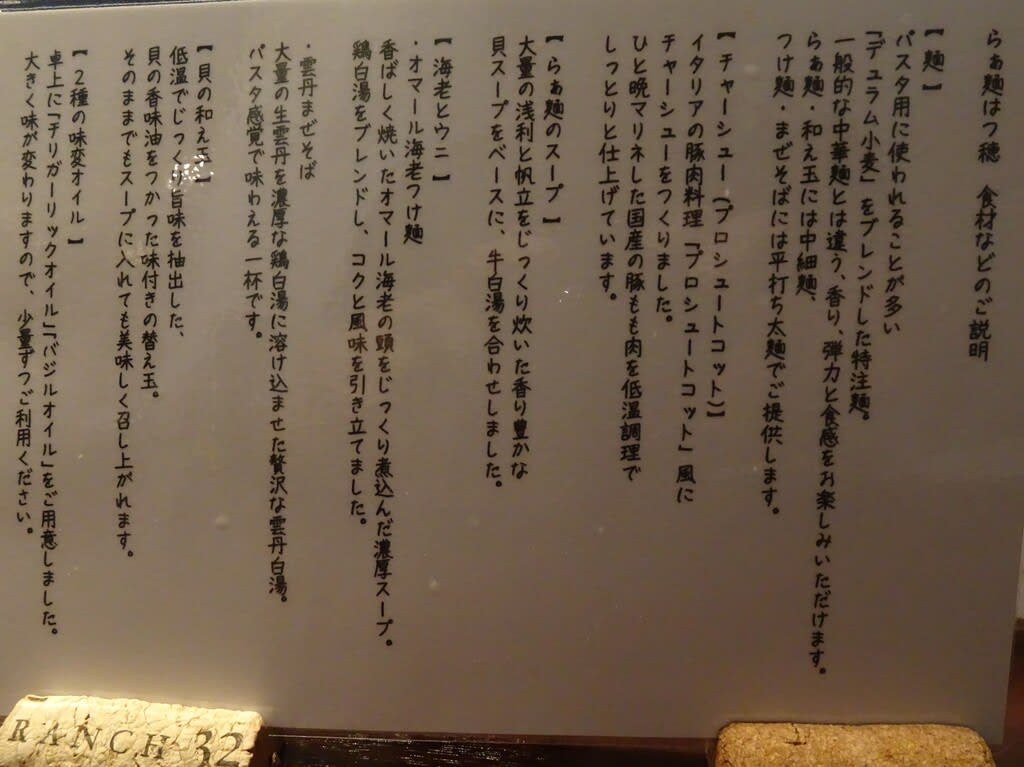 らぁ麺はつ穂　食材などのご説明
【 麺 】
パスタ用に使われることが多い
「デュラム小麦」をブレンドした特注麺。
一般的な中華麺とは違う、香り、弾力と食感をお楽しみいただけます。
らぁ麺・和え玉には中細麺、
つけ麺・まぜそばには平打ち太麺でご提供します。
【 チャーシュー (プロシュートコット) 】
イタリアの豚肉料理「プロシュートコット」風に
チャーシューをつくりました。
ひと晩マリネした国産の豚もも肉を低温調理で
しっとりと仕上げています。
【 らぁ麺のスープ 】
大量の浅利と帆立をじっくり炊いた香り豊かな
貝スープをベースに、牛白湯を合わせしました。
【 海老とウニ 】
・オマール海老つけ麺
香ばしく焼いたオマール海老の頭をじっくり煮込んだ濃厚スープ。
鶏白湯をブレンドし、コクと風味を引き立てました。
・雲丹まぜそば
大量の生雲丹を濃厚な鶏白湯に溶け込ませた贅沢な雲丹白湯。
パスタ感覚で味わえる一杯です。
【 貝の和え玉 】
低温でじっくり旨味を抽出した、
貝の香味油をつかった味付きの替え玉。
そのままでもスープに入れても美味しく召し上がれます。
【 2種の味変オイル 】
卓上に「チリガーリックオイル」「バジルオイル」をご用意しました。
大きく味が変わりますので、少量ずつご利用ください。
RANCH 32